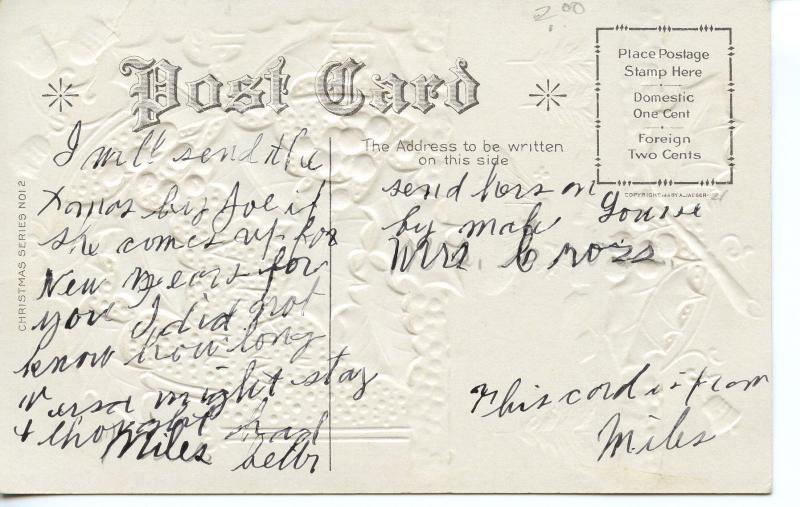 2.00
Post Card
Place Postage
Stamp Here
Domestic
One Cent
Foreign
Two Cents
The Address to be written
on this side
COPYRIGHT 1909 BY A. JAEGER
CHRISTMAS SERIES NO12
I will send the
Xmas by Joe if
she comes up for
New Years for
you I did not
know how long
Versa might stay
& thought had
Miles better
send hers on
by male Louise
Mrs. Cross.
This cord is from
Miles